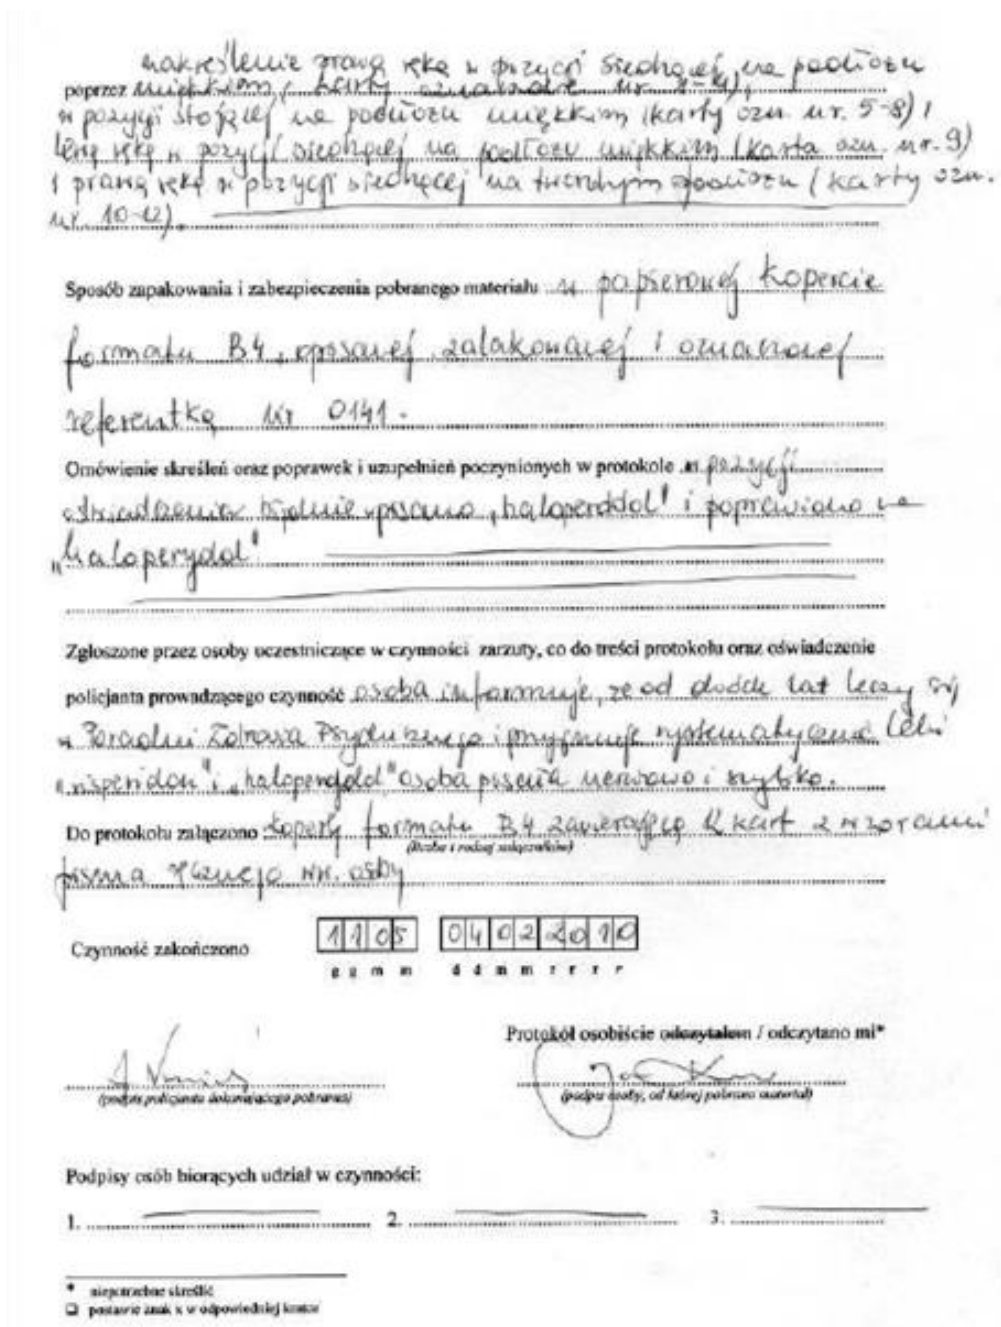 nakreślenie prawą ręką w pozycji siedzącej na podłożu
poprzez miękkim (karty oznaczone nr. 1-4),
w pozycji stojącej na podłożu miękkim (karty ozn. nr. 5-8) i
lewą ręką w pozycji siedzącej na podłożu miękkim (karta ozn. nr. 9)
i prawą ręką w pozycji siedzącej na twardym podłożu (karty ozn.
nr. 10-12).
Sposób zapakowania i zabezpieczenia pobranego materiału w papierowej kopercie
formatu B4, opisanej, zalakowanej i oznaczonej
referentką nr 0141.
Omówienie skreśleń oraz poprawek i uzupełnień poczynionych w protokole w pozycji
oświadczenia błędnie wpisano „haloperddol" i poprawiono na
„haloperydol".
Zgłoszone przez osoby uczestniczące w czynności zarzuty, co do treści protokołu oraz oświadczenie
policjanta prowadzącego czynność osoba informuje, że od lat leczy się
w Poradni Zdrowia Psychicznego i przyjmuje systematycznie leki
„risperidon" i „haloperydol" osoba pisała nerwowo i szybko.
Do protokołu załączono kopertę formatu B4 zawierającą 12 kart z wzorami
(liczba i rodzaj załączników)
pisma ręcznego ww. osoby
Czynność zakończono 1105 04022010
g g m m d d m m r r r r
Protokół osobiście odczytałem / odczytano mi*
(podpis policjanta dokonującego pobrania) (podpis osoby, od której pobrano materiał)
Podpisy osób biorących udział w czynności:
1. 2. 3.
* niepotrzebne skreślić
❏ postawić znak x w odpowiedniej kratce